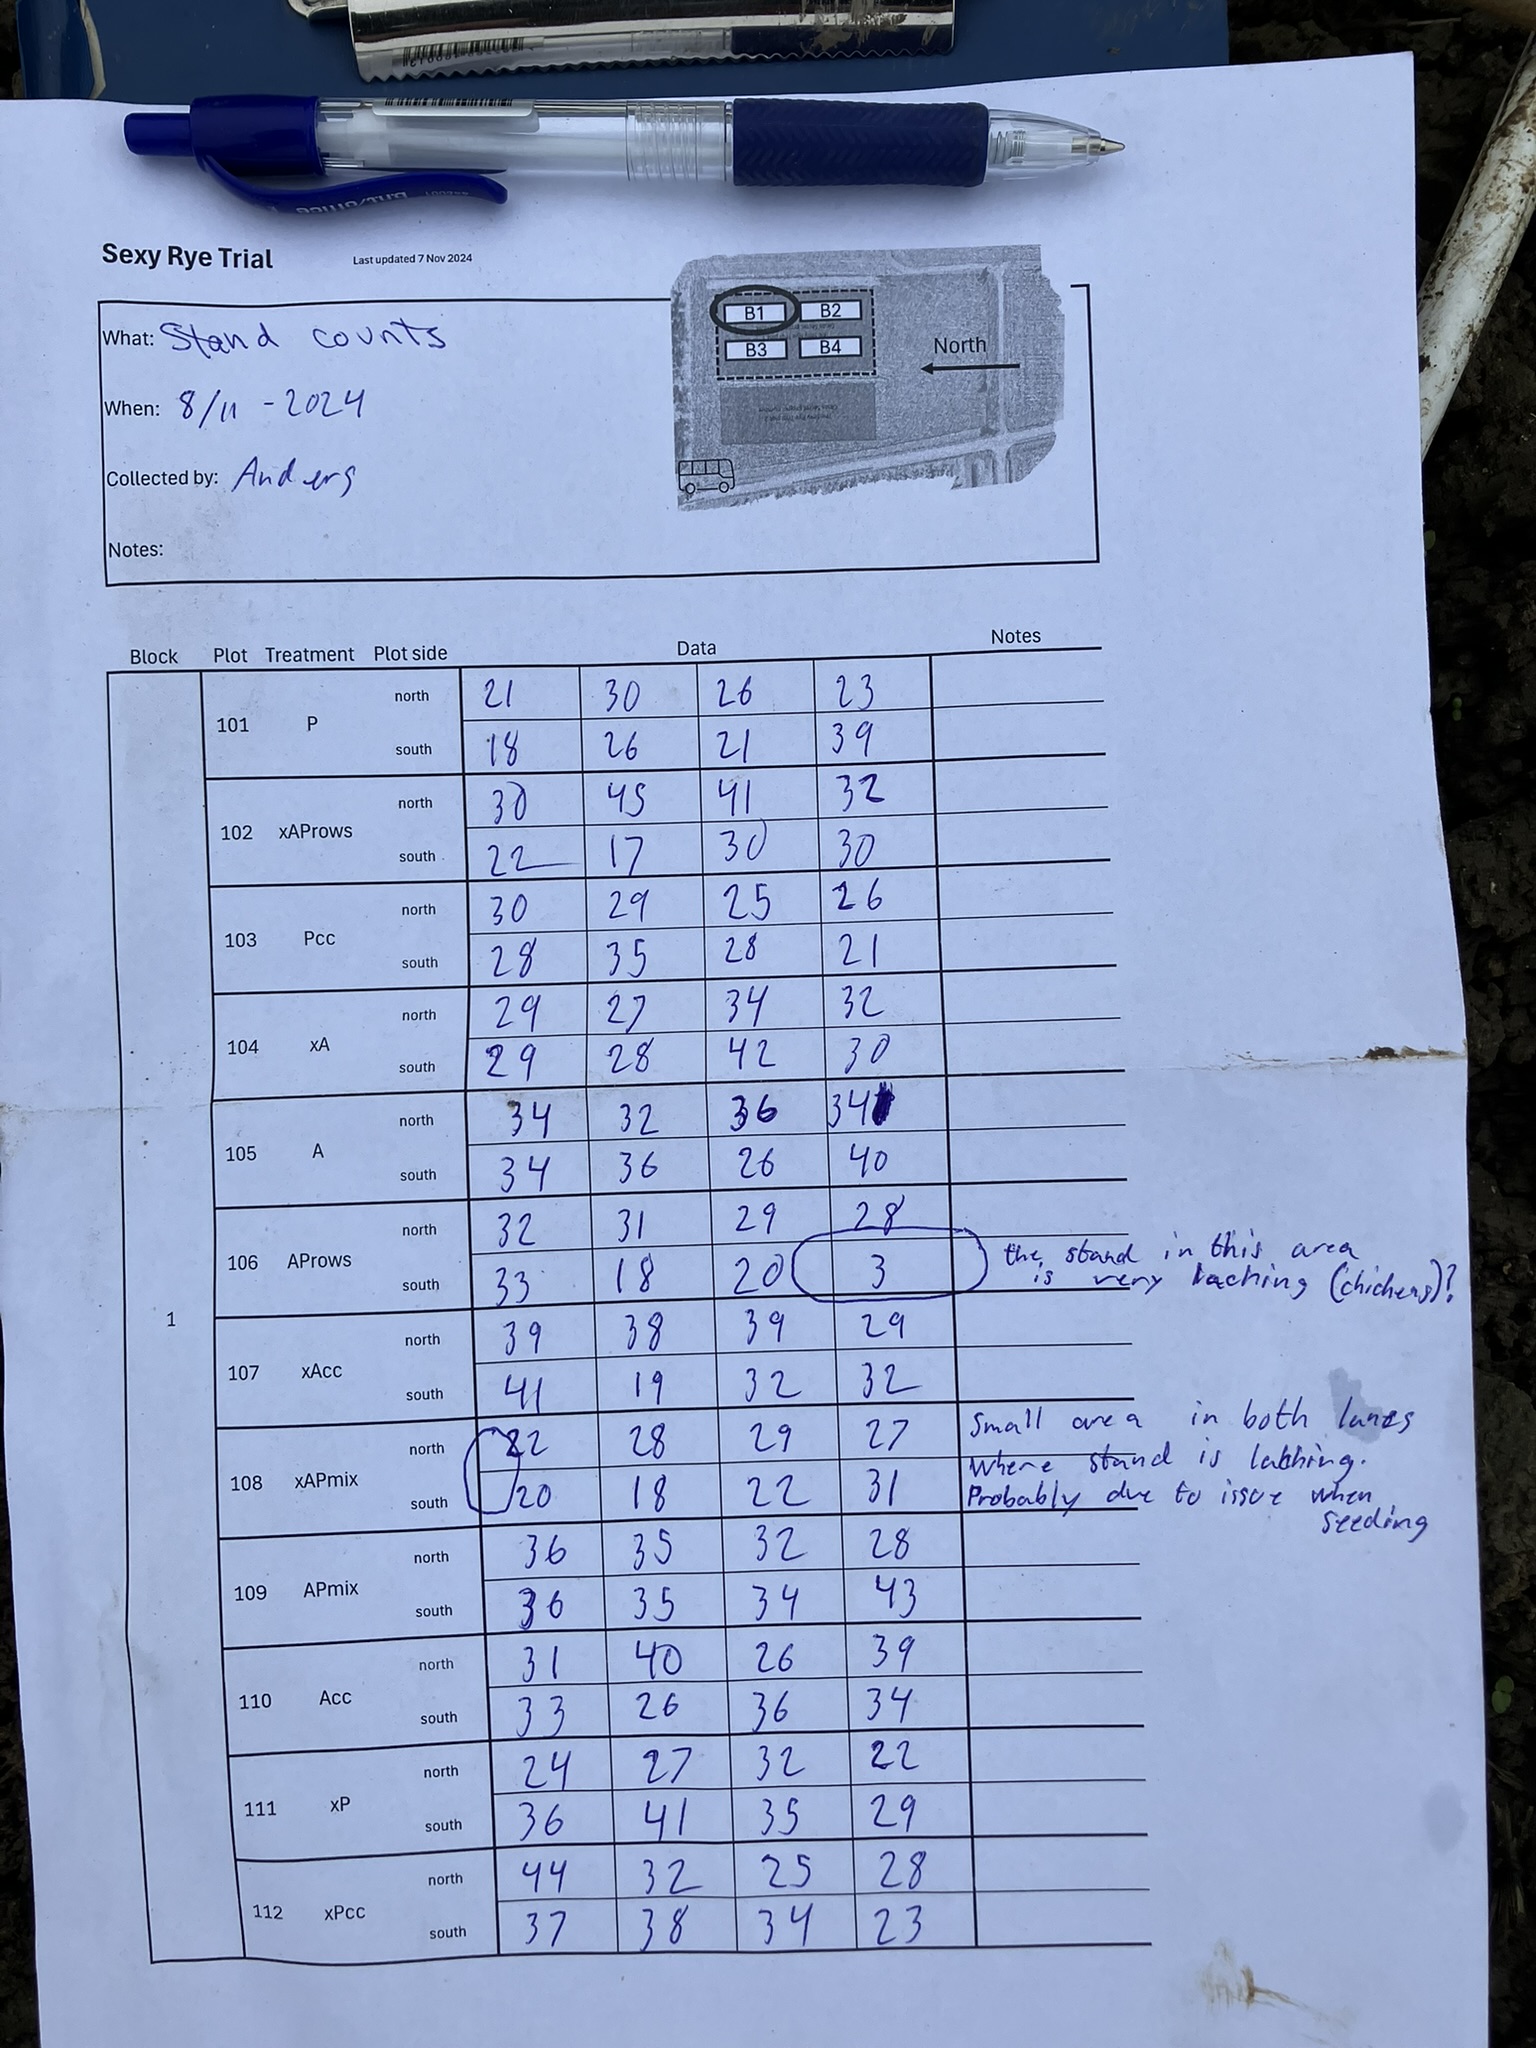 Sexy Rye Trial Last updated 7 Nov 2024
What: Stand counts
When: 8/11 - 2024
Collected by: Anders
Notes:
B1 B2
B3 B4
North
Block Plot Treatment Plot side Data Notes
1
101 P
north 21 30 26 23
south 18 26 21 39
102 xAProws
north 30 45 41 32
south 22 17 30 30
103 Pcc
north 30 29 25 26
south 28 35 28 21
104 xA
north 29 27 34 32
south 29 28 42 30
105 A
north 34 32 36 34
south 34 36 26 40
106 AProws
north 32 31 29 28
south 33 18 20 3 the stand in this area
is very lacking (chickens)?
107 xAcc
north 39 38 39 29
south 41 19 32 32
108 xAPmix
north 22 28 29 27 Small area in both lanes
where stand is lacking.
south 20 18 22 31 Probably due to issue when
seeding
109 APmix
north 36 35 32 28
south 36 35 34 43
110 Acc
north 31 40 26 39
south 33 26 36 34
111 xP
north 24 27 32 22
south 36 41 35 29
112 xPcc
north 44 32 25 28
south 37 38 34 23